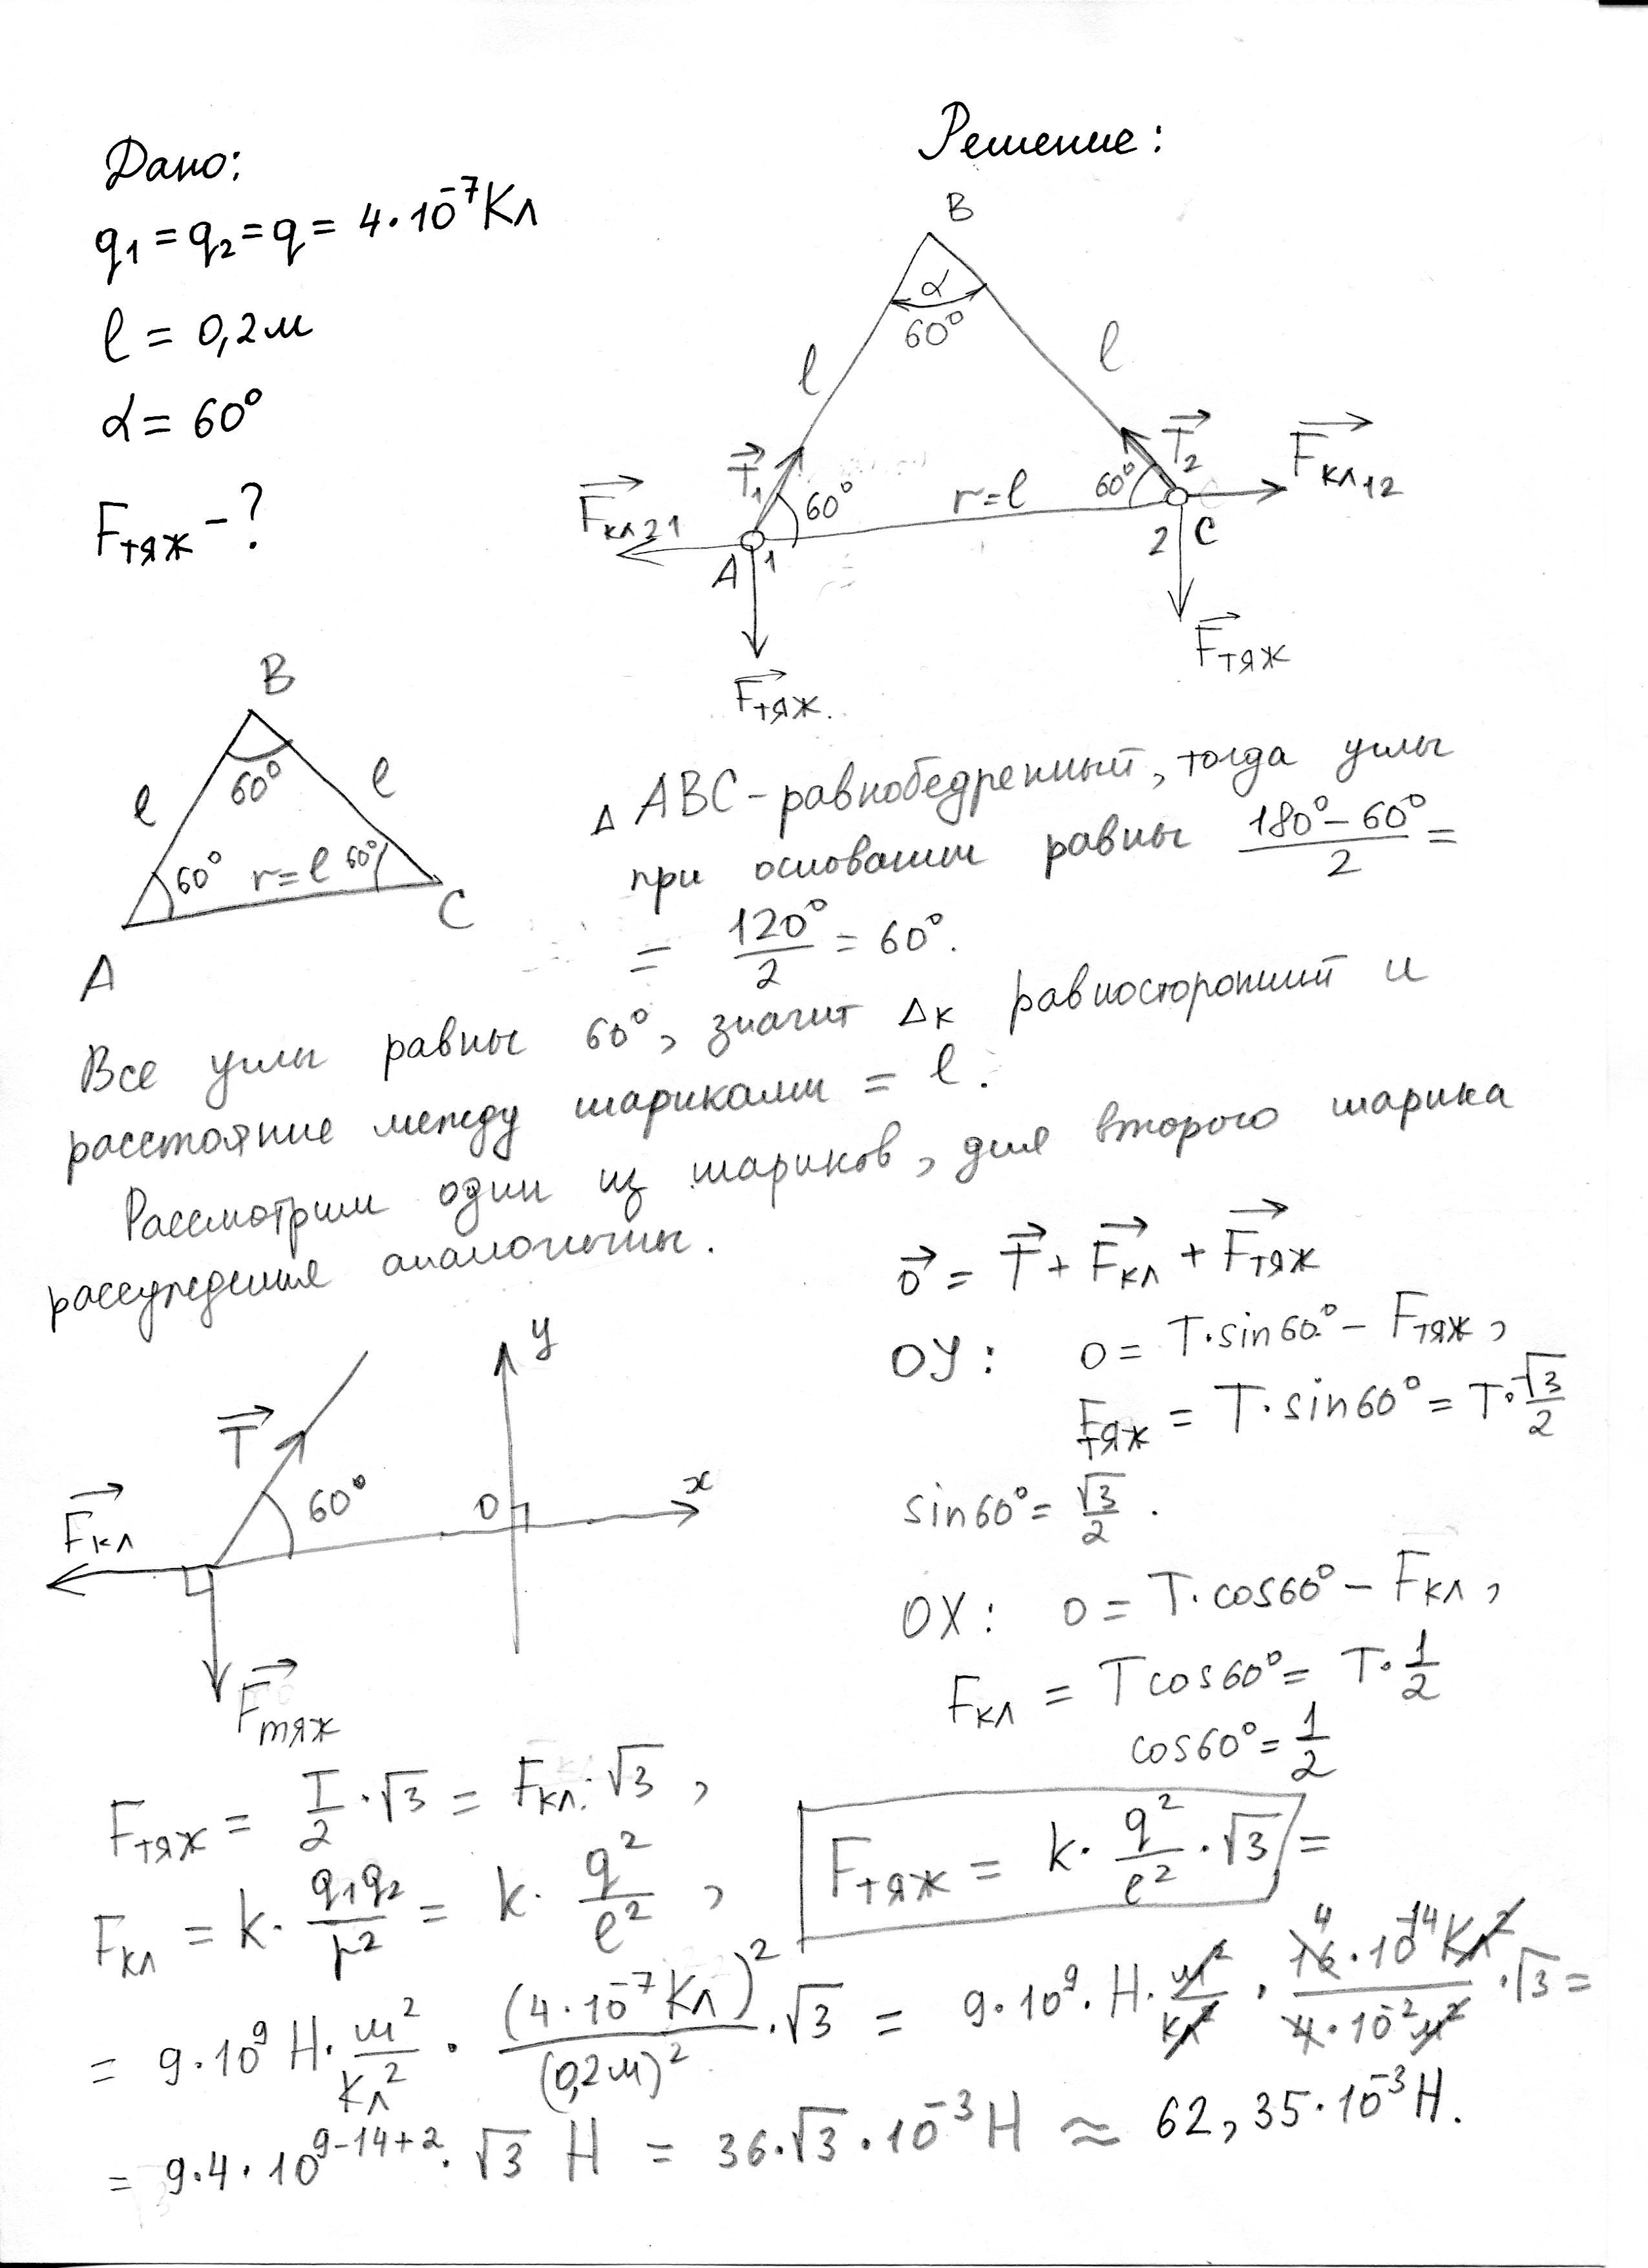 Дано:
q₁ = q₂ = q = 4·10⁻⁷Кл
l = 0,2м
α = 60°
Fтяж - ?
Решение:
B
α
60°
l
l
T₁
60°
r=l
60°
T₂
Fкл₂₁
Fкл₁₂
A
1
2
C
Fтяж.
Fтяж
B
60°
l
l
60°
r=l
60°
A
C
Δ ABC - равнобедренный, тогда углы
при основании равны (180° - 60°)/2 =
= 120°/2 = 60°.
Все углы равны 60°, значит Δк равносторонний и
расстояние между шариками = l.
Рассмотрим один из шариков, для второго шарика
рассуждения аналогичны.
0 = T + Fкл + Fтяж
OY: 0 = T·sin60° - Fтяж,
Fтяж = T·sin60° = T·√3/2
sin60° = √3/2.
OX: 0 = T·cos60° - Fкл,
Fкл = Tcos60° = T·1/2
cos60° = 1/2
y
T
60°
0
x
Fкл
Fтяж
Fтяж = T/2·√3 = Fкл·√3,
Fкл = k·q₁q₂/r² = k·q²/l²,
Fтяж = k·q²/l²·√3 =
= 9·10⁹ Н·м²/Кл²·(4·10⁻⁷Кл)²/(0,2м)²·√3 = 9·10⁹·Н·м²/Кл²·4 16·10⁻¹⁴Кл²/4·10⁻²м²·√3 =
= 9·4·10⁹⁻¹⁴⁺²·√3 Н = 36·√3·10⁻³Н ≈ 62,35·10⁻³Н.